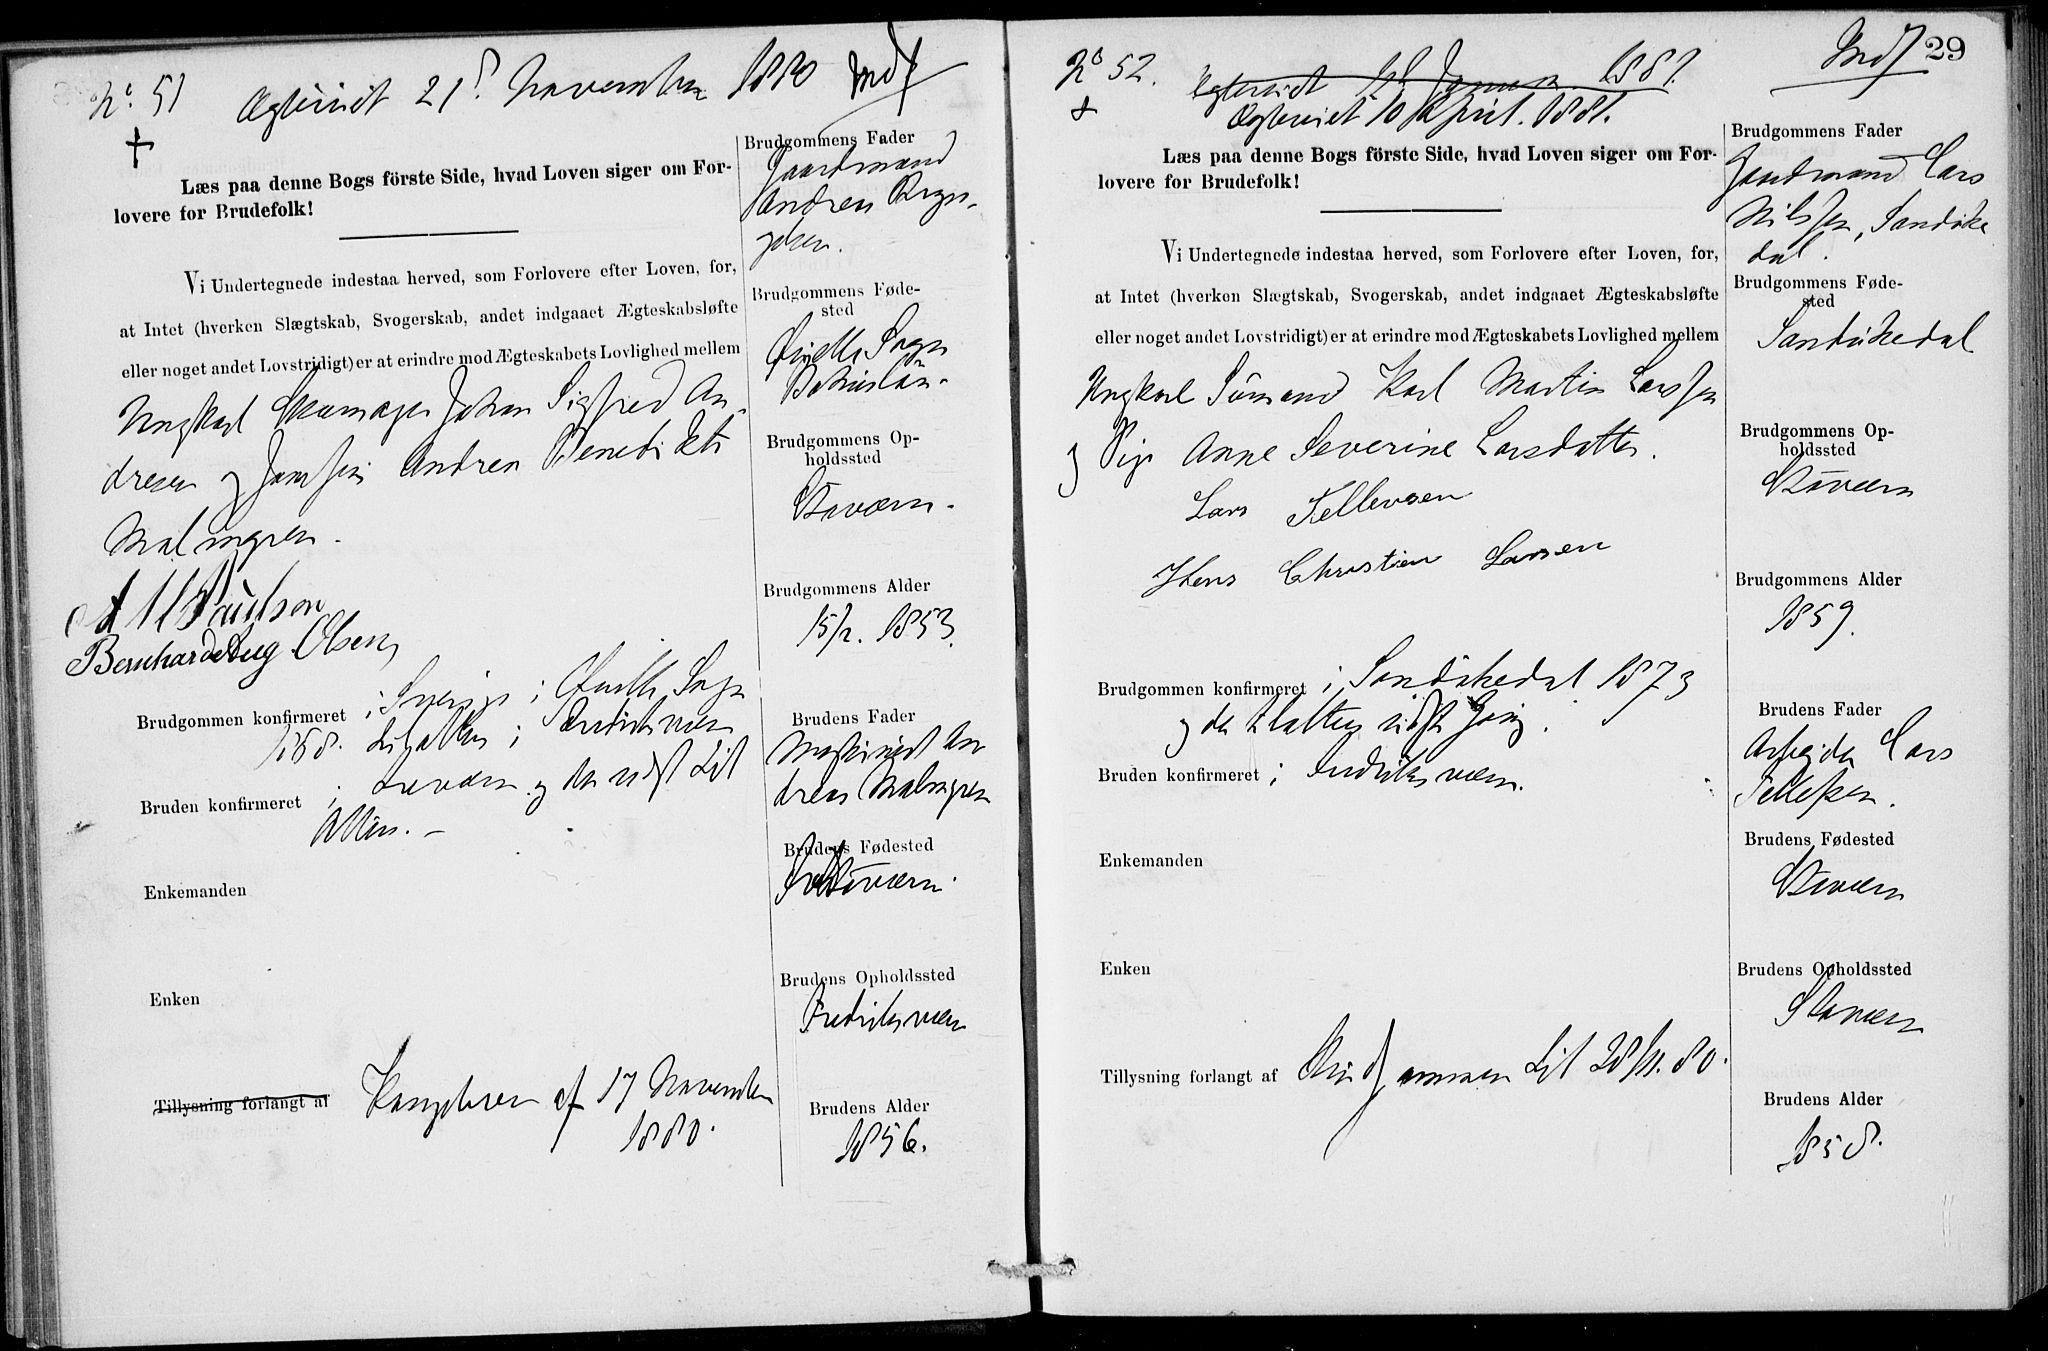 No. 51 Ægteviet 21. November 1880 Indf
Læs paa denne Bogs förste Side, hvad Loven siger om For-
lovere for Brudefolk!
Vi Undertegnede indestaa herved, som Forlovere efter Loven, for,
at Intet (hverken Slægtskab, Svogerskab, andet indgaaet Ægteskabsløfte
eller noget andet Lovstridigt) er at erindre mod Ægteskabets Lovlighed mellem
Ungkarl Skomager Johan Sigfred An-
dresen og Jomfru Andrea Benedikte
Malmgren.
Paulson
Bernhard Olsen
Brudgommen konfirmeret i Sverige i Sogn
1868. i Fredriksværn
Bruden konfirmeret i og der sidst til
Alters. -
Enkemanden
Enken
Tillysning forlangt af af 17 November
1880.
Brudgommens Fader
Gaardmand
Andreas
Brudgommens Føde-
sted
Sogn
Bohuslän.
Brudgommens Op-
holdssted
Staværn.
Brudgommens Alder
15/2. 1853.
Brudens Fader
Maskinist An
dreas Malmgren
Brudens Fødested
Staværn.
Brudens Opholdssted
Fredriksværn
Brudens Alder
1856.
29
No. 52. Ægteviet 1881. Indf
Ægteviet 10 April. 1881.
Læs paa denne Bogs förste Side, hvad Loven siger om For-
lovere for Brudefolk!
Vi Undertegnede indestaa herved, som Forlovere efter Loven, for,
at Intet (hverken Slægtskab, Svogerskab, andet indgaaet Ægteskabsløfte
eller noget andet Lovstridigt) er at erindre mod Ægteskabets Lovlighed mellem
Ungkarl Sømand Karl Martin Larssen
og Pige Anne Severine Larsdatter.
Lars Tellevsen
Hans Christian Larsen
Brudgommen konfirmeret i Sandøkedal 1873
og der til alters sidste Gang.
Bruden konfirmeret i Fredriksværn.
Enkemanden
Enken
Tillysning forlangt af Brudgommen til 28/11. 80.
Brudgommens Fader
Gaardmand Lars
Nilssen, Sandøke
dal.
Brudgommens Føde-
sted
Sandøkedal
Brudgommens Op-
holdssted
Staværn
Brudgommens Alder
1859.
Brudens Fader
Arbejder Lars
Tellefsen.
Brudens Fødested
Staværn
Brudens Opholdssted
Staværn
Brudens Alder
1858.